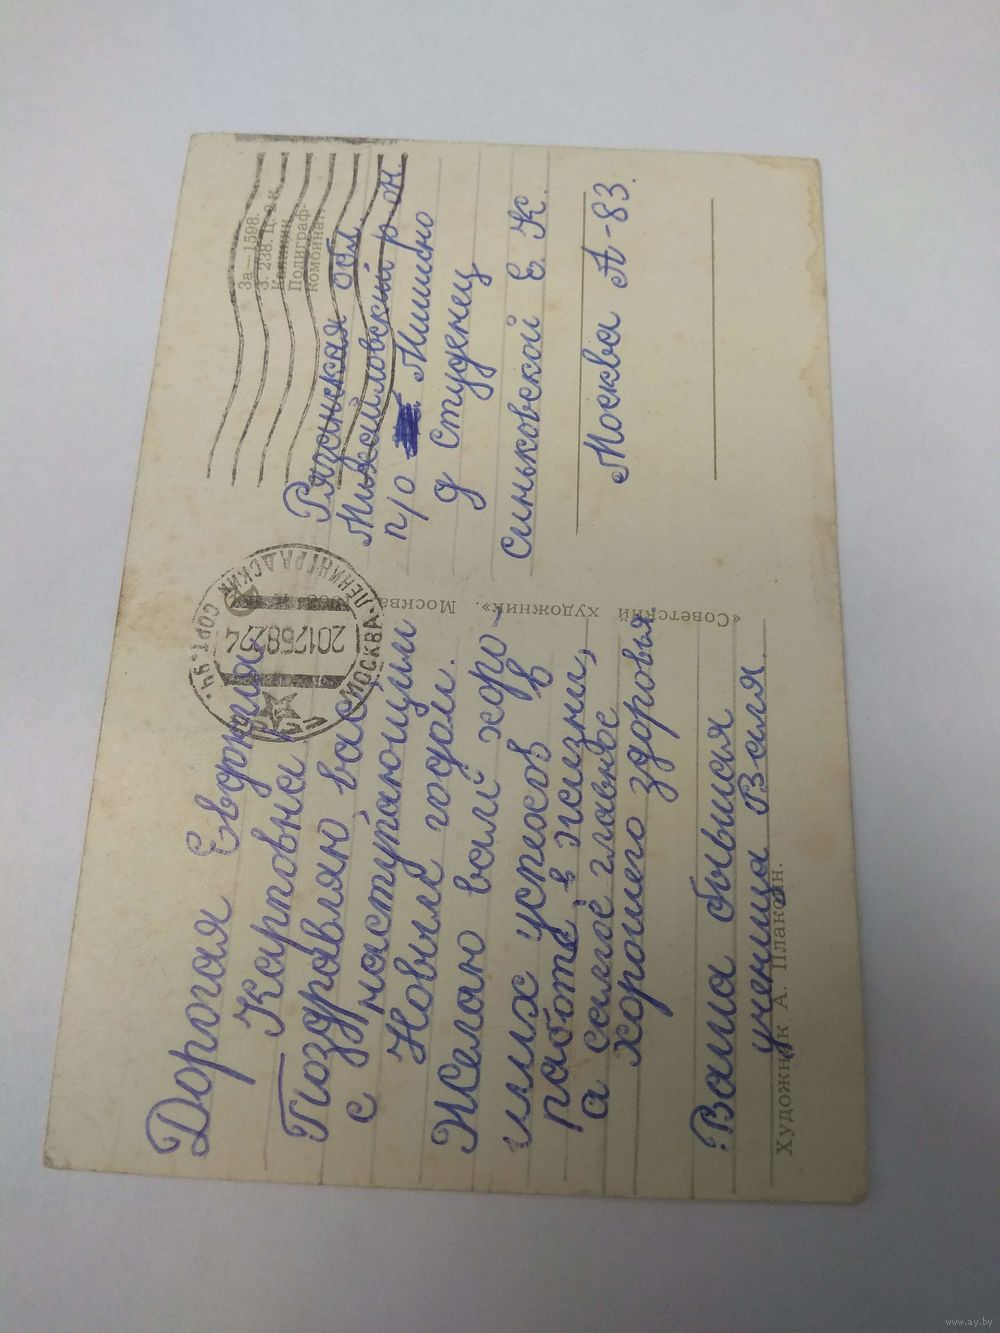 Дорогая Евдокия
Карповна
Поздравляю вас,
с наступающим
Новым годом.
Желаю вам хоро-
ших успехов в
работе в жизни,
а самое главное
хорошего здоровья
Ваша бывшая
ученица Валя.
Художник А. Плаксин.
«Советский художник». Москва
МОСКВА-ЛЕНИНГРАДСКИЙ СОРТ.
201268224
За—1598.
З. 238. Ц. 3 к.
Калинин.
Полиграф-
комбинат.
Рязанская обл.
Михайловский р-он.
п/о Мишино
д Студенец
Синьковской Е. К.
Москва А-83.
www.ay.by